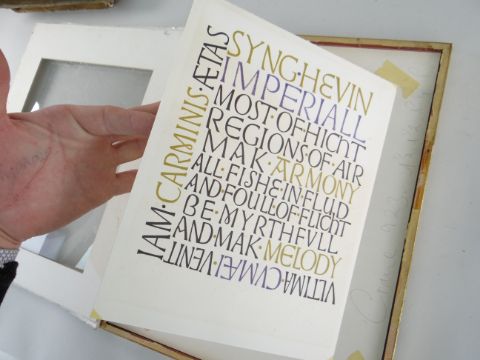 SYNG·HEVIN
IMPERIALL
MOST·OF·HICHT
REGIONS·OF·AIR
MAK·ARMONY
ALL·FISHE·IN·FLUD
AND·FOULL·OF·FLICHT
BE·MYRTHFVLL
AND·MAK·MELODY
VLTIMA·CVMÆI·VENIT
IAM·CARMINIS·ÆTAS